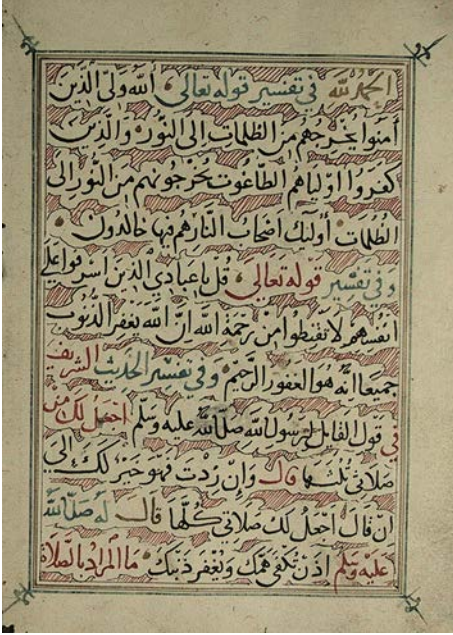 الحمد لله في تفسير قوله تعالى الله ولي الذين
أمنوا يخرجهم من الظلمات الى النور والذين
كفروا اوليآهم الطاغوت يخرجونهم من النور الى
الظلمات أولئك اصحاب النار هم فيها خالدون
وفي تفسير قوله تعالى قل يا عبادي الذين اسرفوا على
انفسهم لا تقنطوا من رحمة الله ان الله يغفر الذنوب
جميعا انه هو الغفور الرحيم وفي تفسير الحديث الشريف
في قول القايل لرسول الله صلى الله عليه وسلم اجعل لك من
صلاتي ثلثها قال وان زدت فهو خير لك الى
ان قال اجعل لك صلاتي كلها قال له صلى الله
عليه وسلم اذن تكفى همك ويغفر ذنبك ما المراد بالصلاة